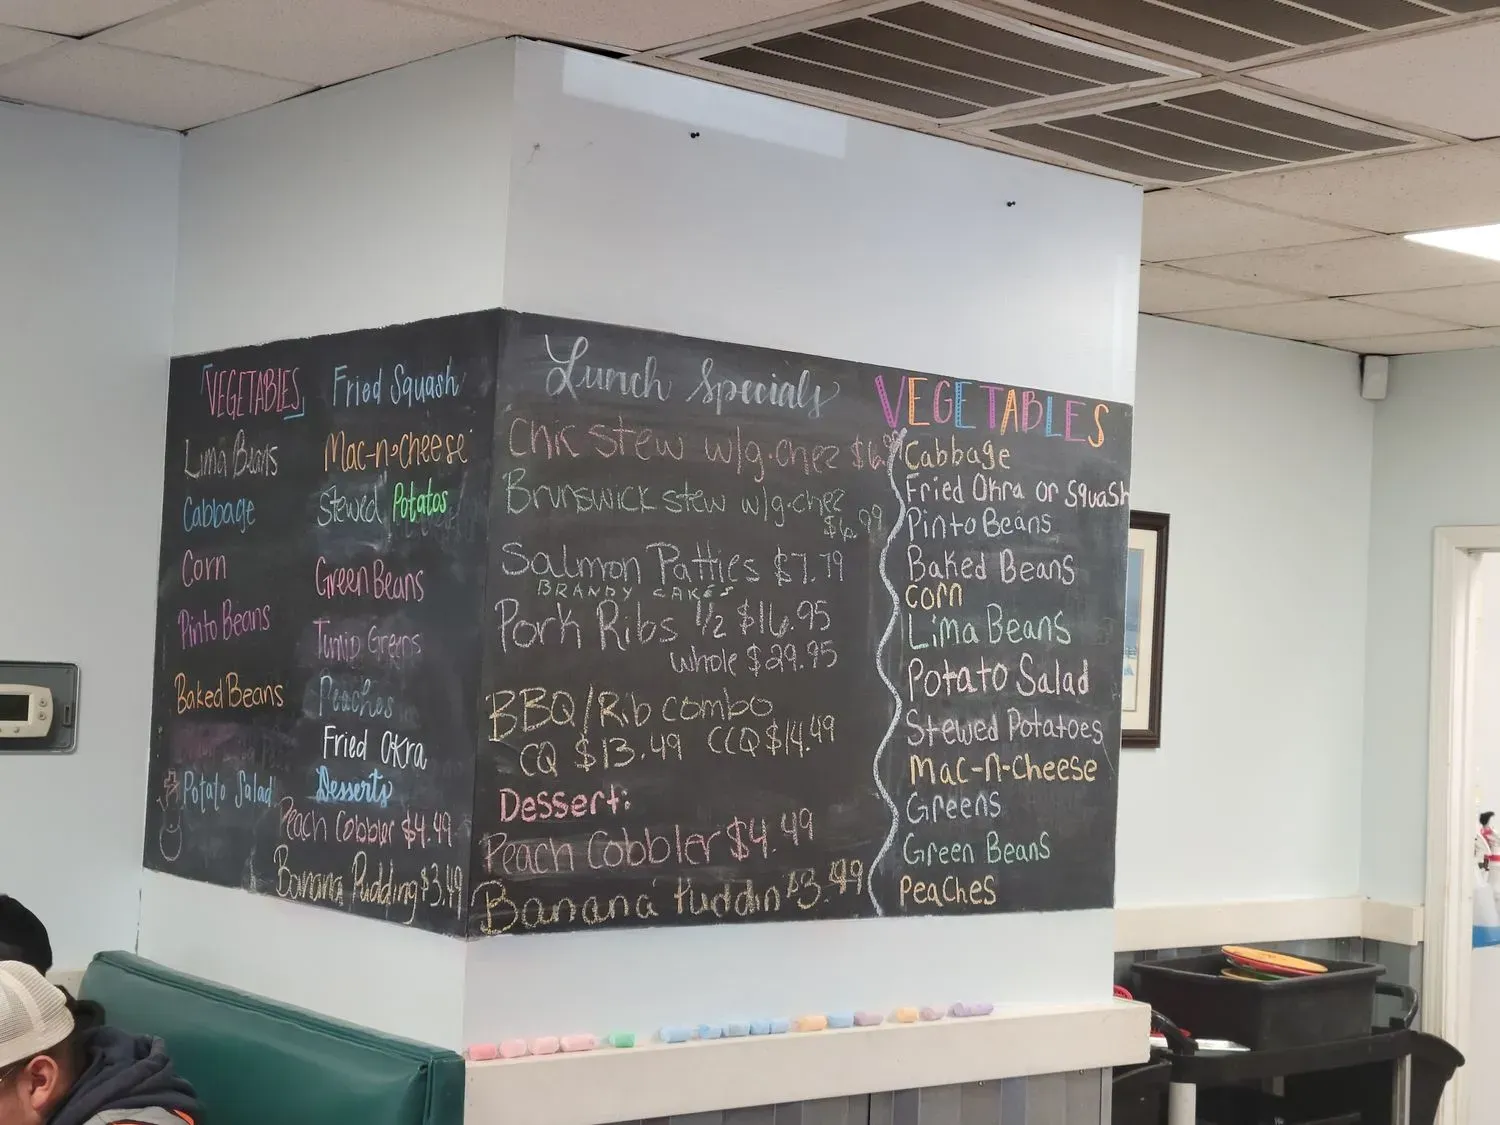 VEGETABLES
Lima Beans
Cabbage
Corn
Pinto Beans
Baked Beans
Potato Salad
Fried Squash
Mac-n-cheese
Stewed Potatos
Green Beans
Turnip Greens
Peaches
Fried Okra
Desserts
Peach Cobbler $4.49
Banana Pudding $3.49
Lunch Specials
Chic stew w/g.chez
Brunswick stew w/g.chez
$6.99
Salmon Patties $7.79
BRANDY CAKES
Pork Ribs 1/2 $16.95
whole $29.95
BBQ/Rib combo
CQ $13.49 CCQ $14.49
Dessert:
Peach Cobbler $4.49
Banana Puddin $3.49
VEGETABLES
Cabbage
Fried Okra or Squash
Pinto Beans
Baked Beans
Corn
Lima Beans
Potato Salad
Stewed Potatoes
Mac-n-cheese
Greens
Green Beans
Peaches